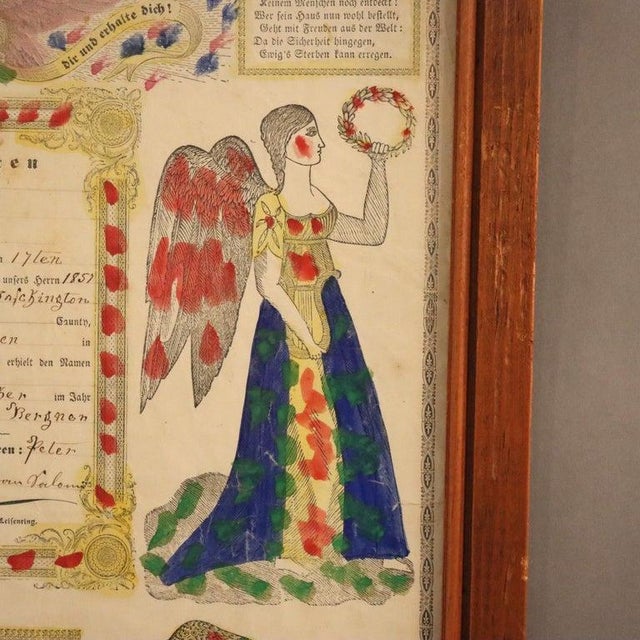 dir und erhalte dich!
Keinem Menschen noch entdeckt:
Wer sein Haus nun wohl bestellt,
Geht mit Freuden aus der Welt:
Da die Sicherheit hingegen,
Ewig's Sterben kann erregen.
17ten
unsers Herrn 1851
County,
in
erhielt den Namen
im Jahr
Peter
Leisenring.